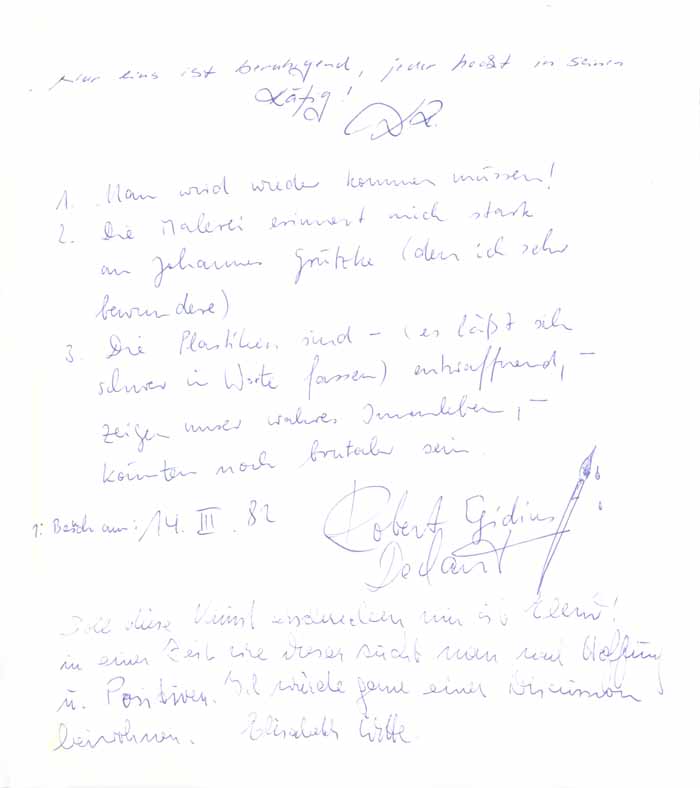 Nur eins ist beruhigend, jeder hockt in seinem
Käfig!
1. Man wird wieder kommen müssen!
2. Die Malerei erinnert mich stark
an Johannes Grützke (den ich sehr
bewundere)
3. Die Plastiken sind – (es läßt sich
schwer in Worte fassen) entwaffnend, –
zeigen unser wahres Innenleben, –
könnten noch brutaler sein.
1: Besch am: 14. III. 82
Robert Egidius
Soll diese Kunst erschrecken
in einer Zeit wie dieser sucht man nach Hoffnung
u. Positiven. Ich würde gerne einer Discussion
beiwohnen. Elisabeth Witte.